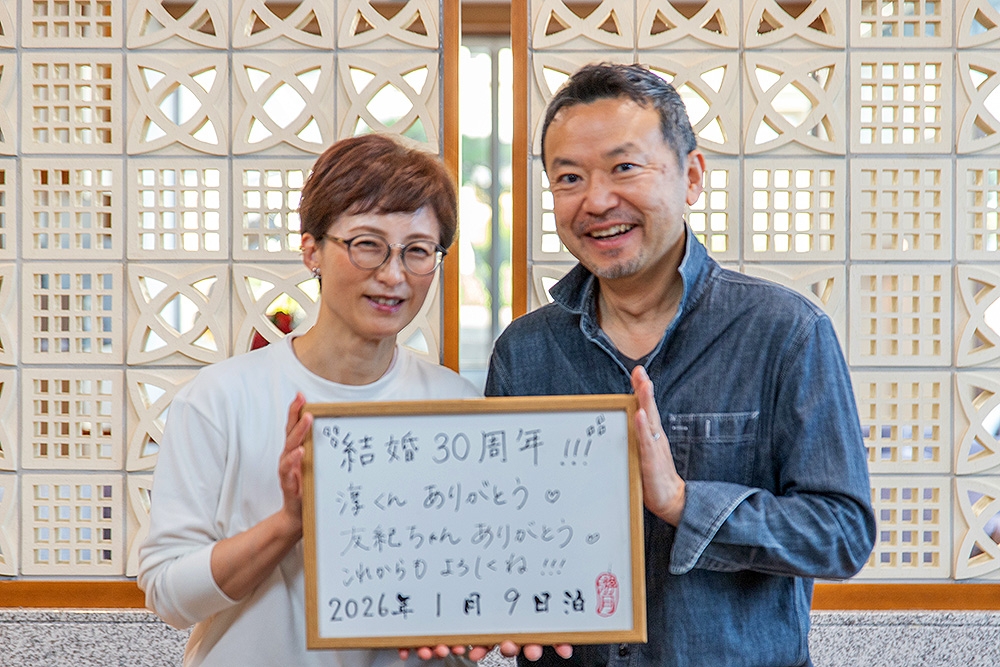 結婚30周年!!!
淳くん ありがとう♡
友紀ちゃん ありがとう♡
これからも よろしくね!!!
2026年 1月 9日泊